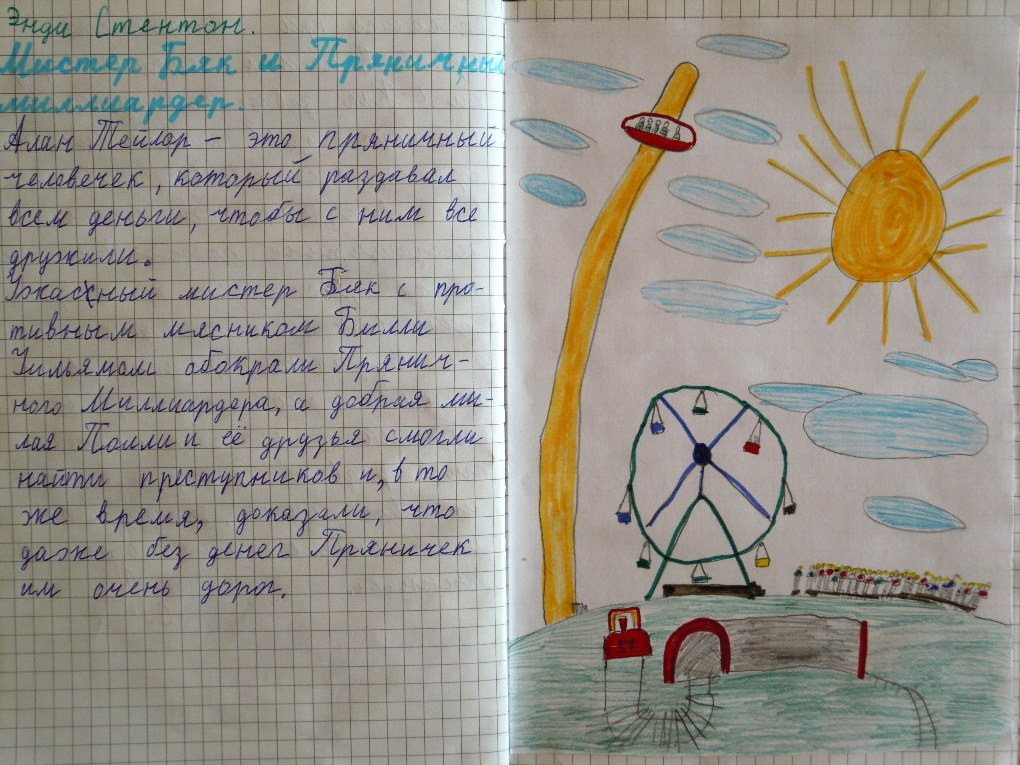 Энди Стентон.
Мистер Бяк и Пряничный
миллиардер.
Алан Тейлор – это пряничный
человечек, который раздавал
всем деньги, чтобы с ним все
дружили.
Ужасный мистер Бяк с про-
тивным мясником Билли
Уильямом обокрали Прянич-
ного Миллиардера, а добрая ми-
лая Полли и её друзья смогли
найти преступников и, в то
же время, доказали, что
даже без денег Пряничек
им очень дорог.